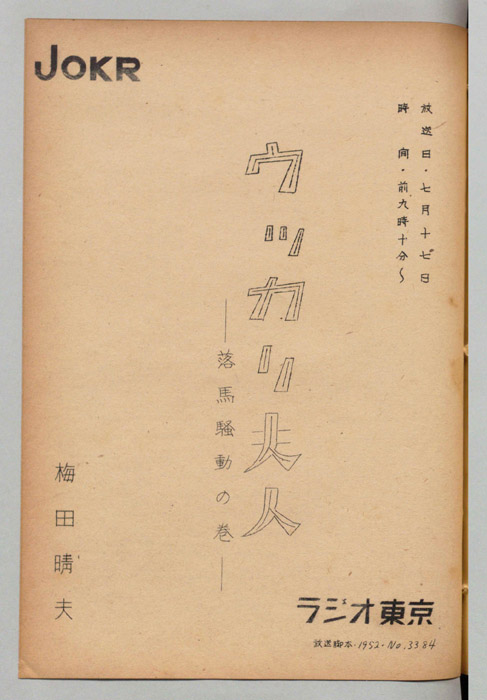 JOKR
放送日・七月十七日
時間・前九時十分〜
ウッカリ夫人
―落馬騒動の巻―
梅田晴夫
ラジオ東京
放送脚本・1952・No.3384